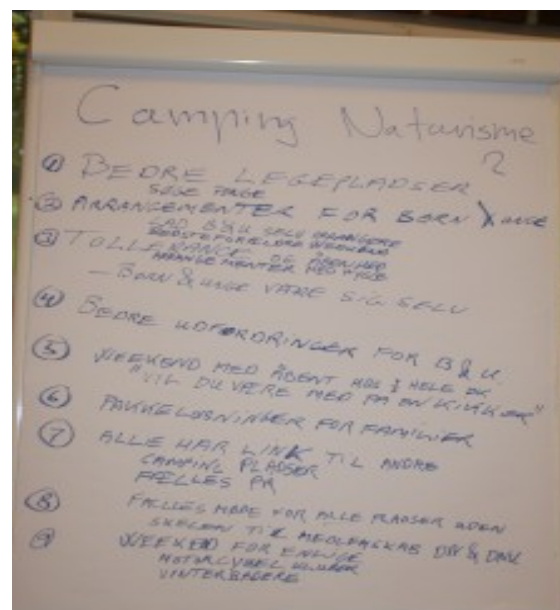 Camping Naturisme
2
① BEDRE LEGEPLADSER
SØGE PENGE
② ARRANGEMENTER FOR BØRN & UNGE
LAD B&U SELV ARRANGERE
BEDSTEFORÆLDRE WEEKEND
③ TOLLERANCE OG ÅBENHED
ARRANGEMENTER MED HYGGE
- BØRN & UNGE VÆRE SIG SELV
④ BEDRE UDFORDRINGER FOR B & U.
⑤ WEEKEND MED ÅBENT HUS I HELE DK
"VIL DU VÆRE MED PÅ EN KIKKER"
⑥ PAKKELØSNINGER FOR FAMILIER
⑦ ALLE HAR LINK TIL ANDRE
CAMPING PLADSER
FÆLLES PR
⑧ FÆLLES MØDE FOR ALLE PLADSER UDEN
SKELEN TIL MEDLEMSKAB
⑨ WEEKEND FOR ENLIGE
MOTORCYKEL KLUBBER
VINTERBADERE